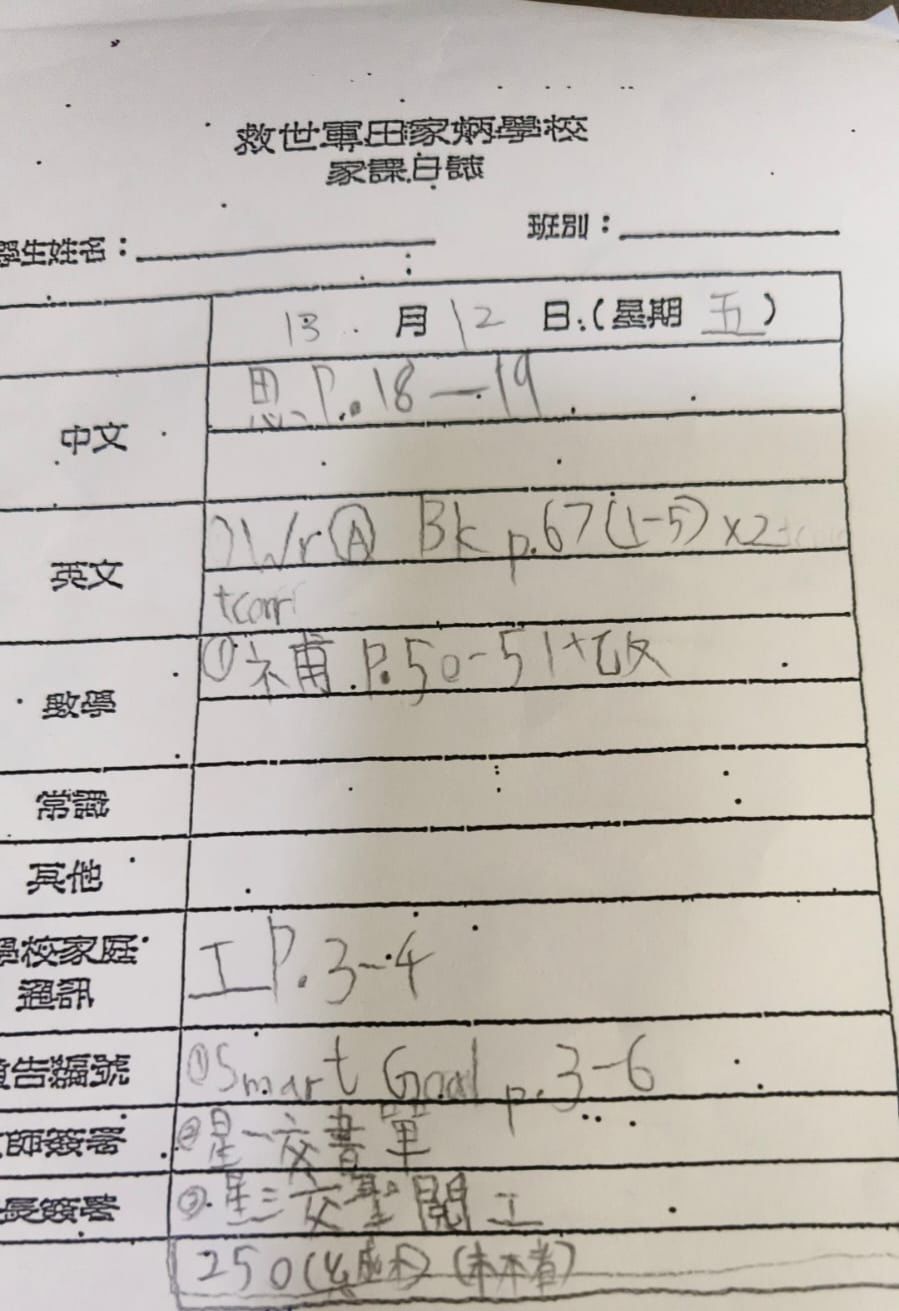 救世軍田家炳學校
家課日誌
學生姓名：
班別：
13 月 12 日：(星期 五)
中文
思 P. 18-19
英文
Wr Ⓐ Bk p.67 (1-5) x2
+corr
數學
① 補 P. 50-51+改
常識
其他
學校家庭
通訊
工 P. 3-4
告編號
① Smart Goal p. 3-6
師簽署
② 星一交書單
長簽署
③ 星三交聖 工
250